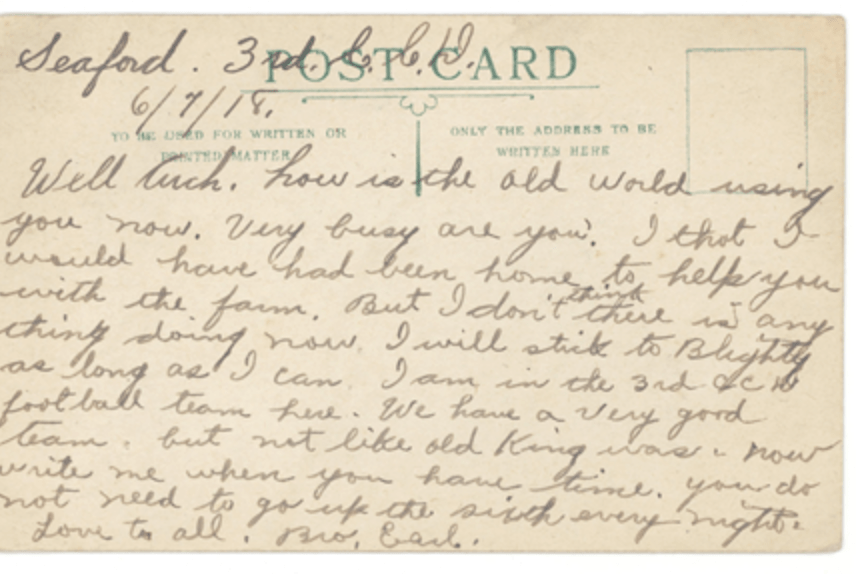 Seaford. 3rd. C. C. D.
POST CARD
6/7/18.
TO BE USED FOR WRITTEN OR
PRINTED MATTER
ONLY THE ADDRESS TO BE
WRITTEN HERE
Well how is the old world using
you now. Very busy are you. I thot I
would have had been home to help you
with the farm. But I don't think there is any
thing doing now. I will stick to Blighty
as long as I can. I am in the 3rd
football team here. We have a very good
team. but not like old King was. now
write me when you have time. you do
not need to go up the sixth every night.
Love to all. Bro. Earl.